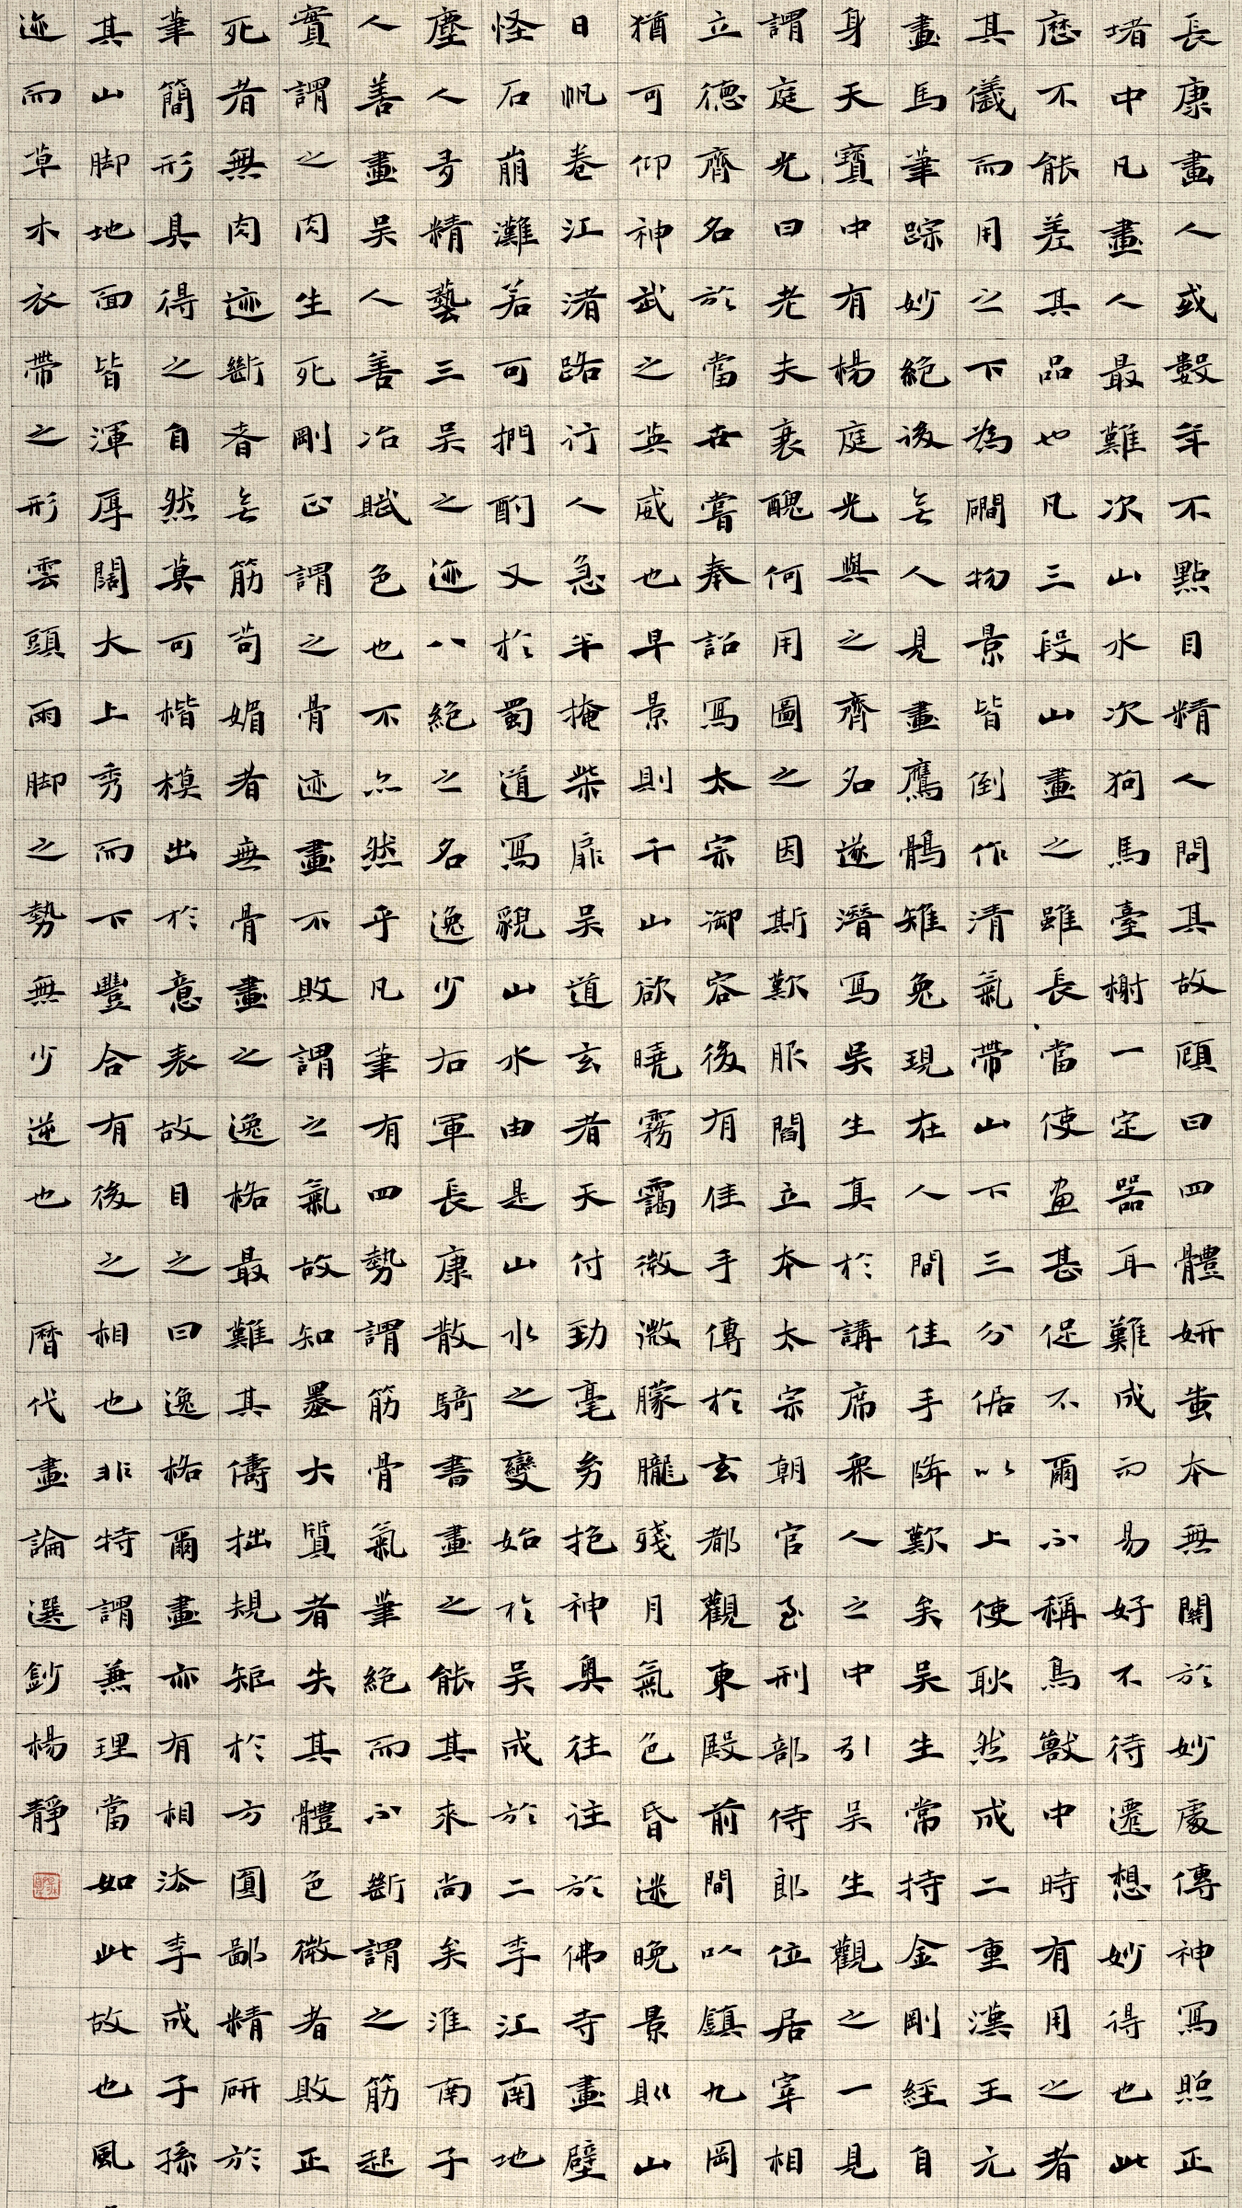 長康畫人或數年不點目精人問其故頋曰四體妍蚩本無關於妙處傳神寫照正
堵中凡畫人最難次山水次狗馬臺榭一定器耳難成而易好不待遷想妙得也此
歷不能差其品也凡三段山畫之雖長當使畫甚促不爾不稱鳥獸中時有用之者
其儀而用之下為磵物景皆倒作清氣帶山下三分倨以上使耿然成二重漢王元
畫馬筆踪妙絕後無人見畫鷹鶻雉兔現在人間佳手降歎矣吳生常持金剛經自
身天寶中有楊庭光與之齊名遂潛寫吳生真於講席衆人之中引吳生觀之一見
謂庭光曰老夫衰醜何用圖之因斯歎服閻立本太宗朝官至刑部侍郎位居宰相
立德齊名於當世嘗奉詔寫太宗御容後有佳手傳於玄都觀東殿前間以鎮九岡
猶可仰神武之英威也早景則千山欲曉霧靄微微朦朧殘月氣色昏迷晚景則山
日帆卷江渚路行人急半掩柴扉吳道玄者天付勁毫㓜抱神奧往往於佛寺畫壁
怪石崩灘若可捫酌又於蜀道寫貌山水由是山水之變始於吳成於二李江南地
塵人奇精藝三吳之迹八絕之名逸少右軍長康散騎書畫之能其來尚矣淮南子
人善畫吳人善冶賦色也不亦然乎凡筆有四勢謂筋骨氣筆絕而不斷謂之筋起
實謂之肉生死剛正謂之骨迹畫不敗謂之氣故知墨大質者失其體色微者敗正
死者無肉迹斷者無筋苟媚者無骨畫之逸格最難其儔拙規矩於方圓鄙精研於
筆簡形具得之自然莫可楷模出於意表故目之曰逸格爾畫亦有相法李成子孫
其山脚地面皆渾厚闊大上秀而下豐合有後之相也非特謂兼理當如此故也風
迹而草木衣帶之形雲頭雨脚之勢無少逆也 曆代畫論選鈔楊靜